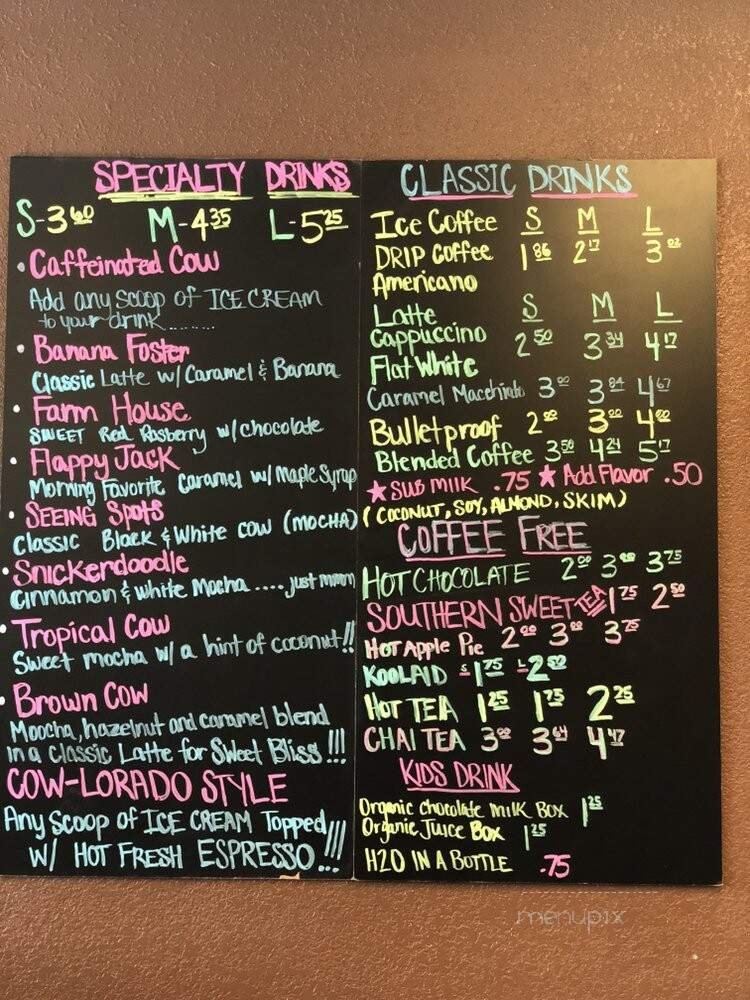 SPECIALTY DRINKS
S-3.60 M-4.35 L-5.25
• Caffeinated Cow
Add any scoop of ICE CREAM
to your drink........
• Banana Foster
Classic Latte w/ Caramel & Banana
• Farm House
SWEET Red Rasberry w/chocolate
• Flappy Jack
Morning Favorite Caramel w/ Maple Syrup
• SEEING Spots
Classic Black & White cow (mocha)
• Snickerdoodle
Cinnamon & white Mocha .... just mmm
• Tropical Cow
Sweet mocha w/ a hint of coconut!!
• Brown Cow
Moocha, hazelnut and caramel blend
in a classic Latte for Sweet Bliss!!!
COW-LORADO STYLE
Any scoop of ICE CREAM Topped
W/ HOT FRESH ESPRESSO...!!!
CLASSIC DRINKS
Ice Coffee S M L
DRIP Coffee 1 86 2 17 3 02
Americano
Latte S M L
Cappuccino 2 50 3 34 4 17
Flat White
Caramel Macchiato 3 00 3 84 4 67
Bulletproof 2 00 3 00 4 00
Blended Coffee 3 50 4 24 5 17
★ SUB MILK .75 ★ Add Flavor .50
(COCONUT, SOY, ALMOND, SKIM)
COFFEE FREE
HOT CHOCOLATE 2 00 3 00 3 75
SOUTHERN SWEET TEA 1 75 2 50
Hot Apple Pie 2 00 3 00 3 75
KOOLAID S 1 75 L 2 52
HOT TEA 1 25 1 75 2 25
CHAI TEA 3 00 3 64 4 47
KIDS DRINK
Organic chocolate milk Box 1 25
Organic Juice Box 1 25
H2O IN A BOTTLE .75
menupix